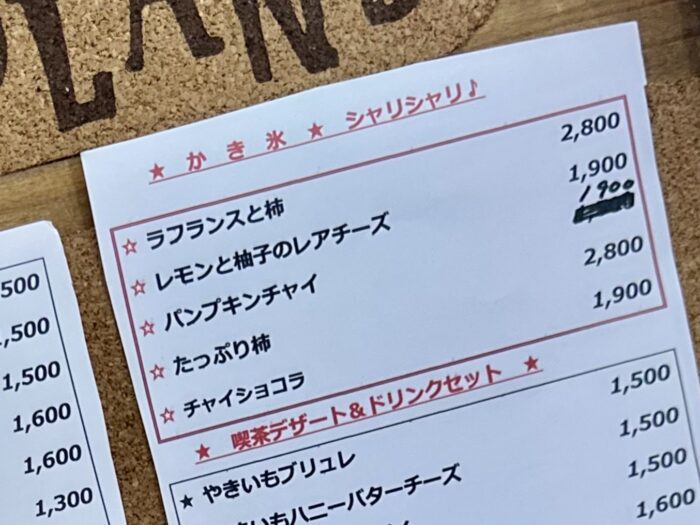 LAND
★ かき氷 ★ シャリシャリ♪
☆ ラフランスと柿 2,800
☆ レモンと柚子のレアチーズ 1,900
☆ パンプキンチャイ 1900
☆ たっぷり柿 2,800
☆ チャイショコラ 1,900
★ 喫茶デザート&ドリンクセット ★
★ やきいもブリュレ 1,500
きいもハニーバターチーズ 1,500
1,500
1,600
500
,500
1,500
1,600
1,600
1,300